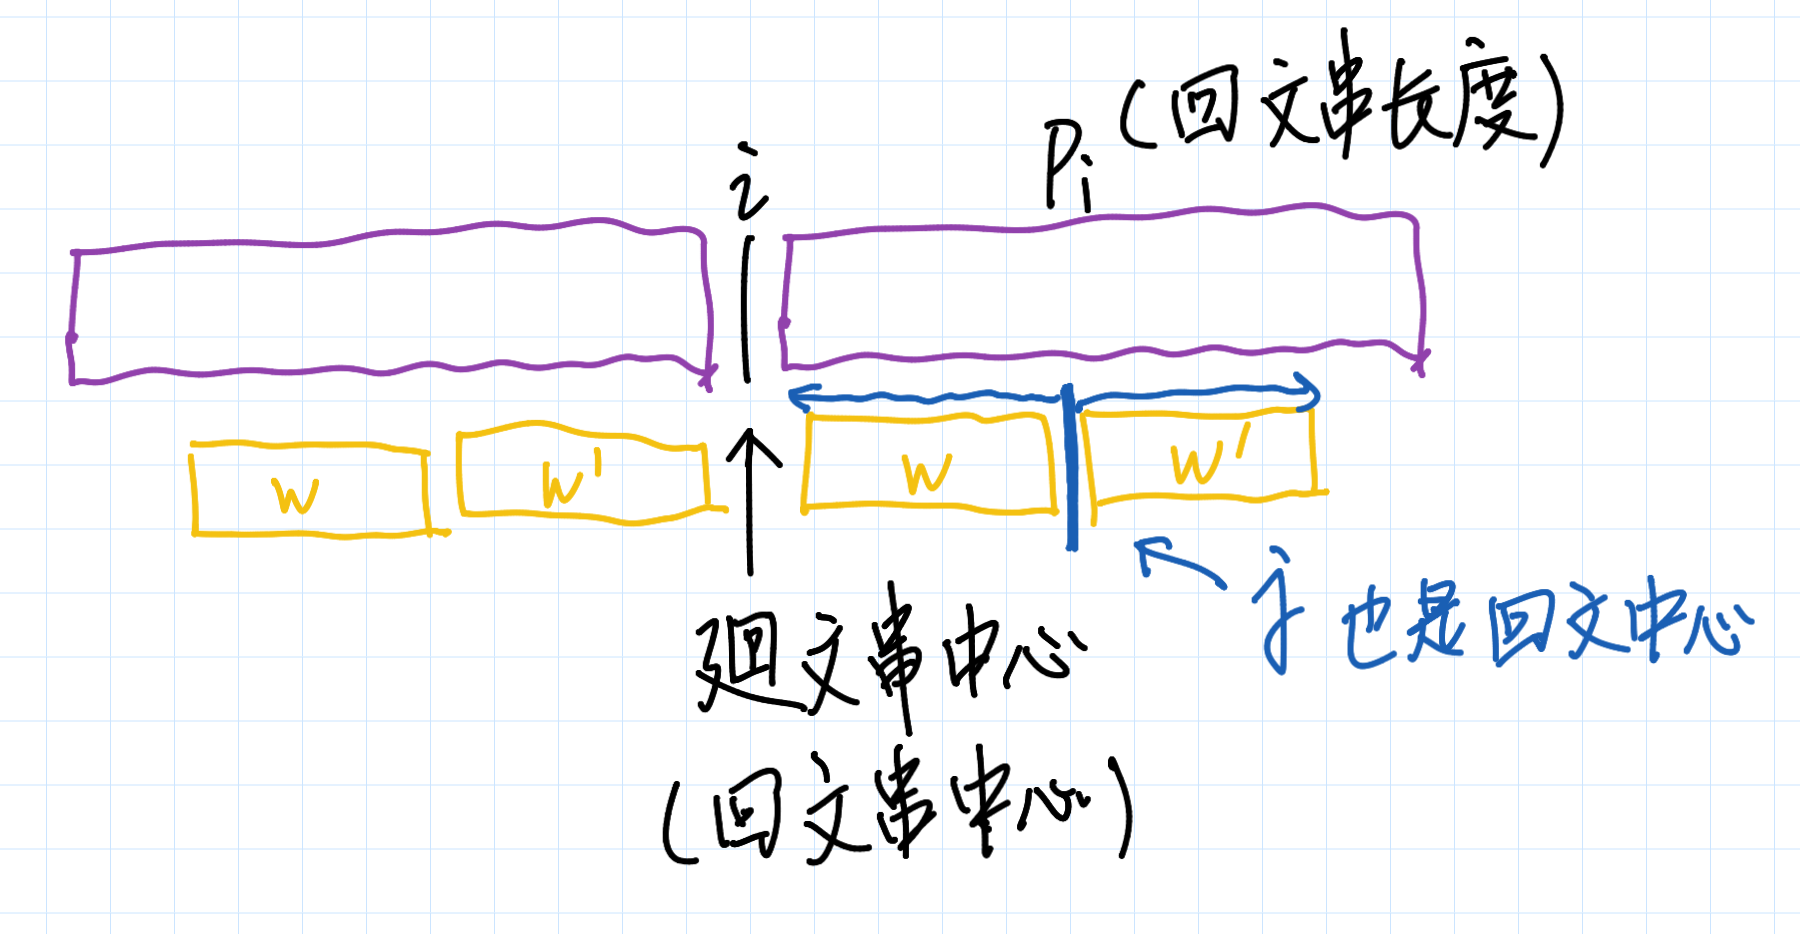 Pi (回文串长度)
i
w w' w w'
j 也是回文中心
廻文串中心
(回文串中心)